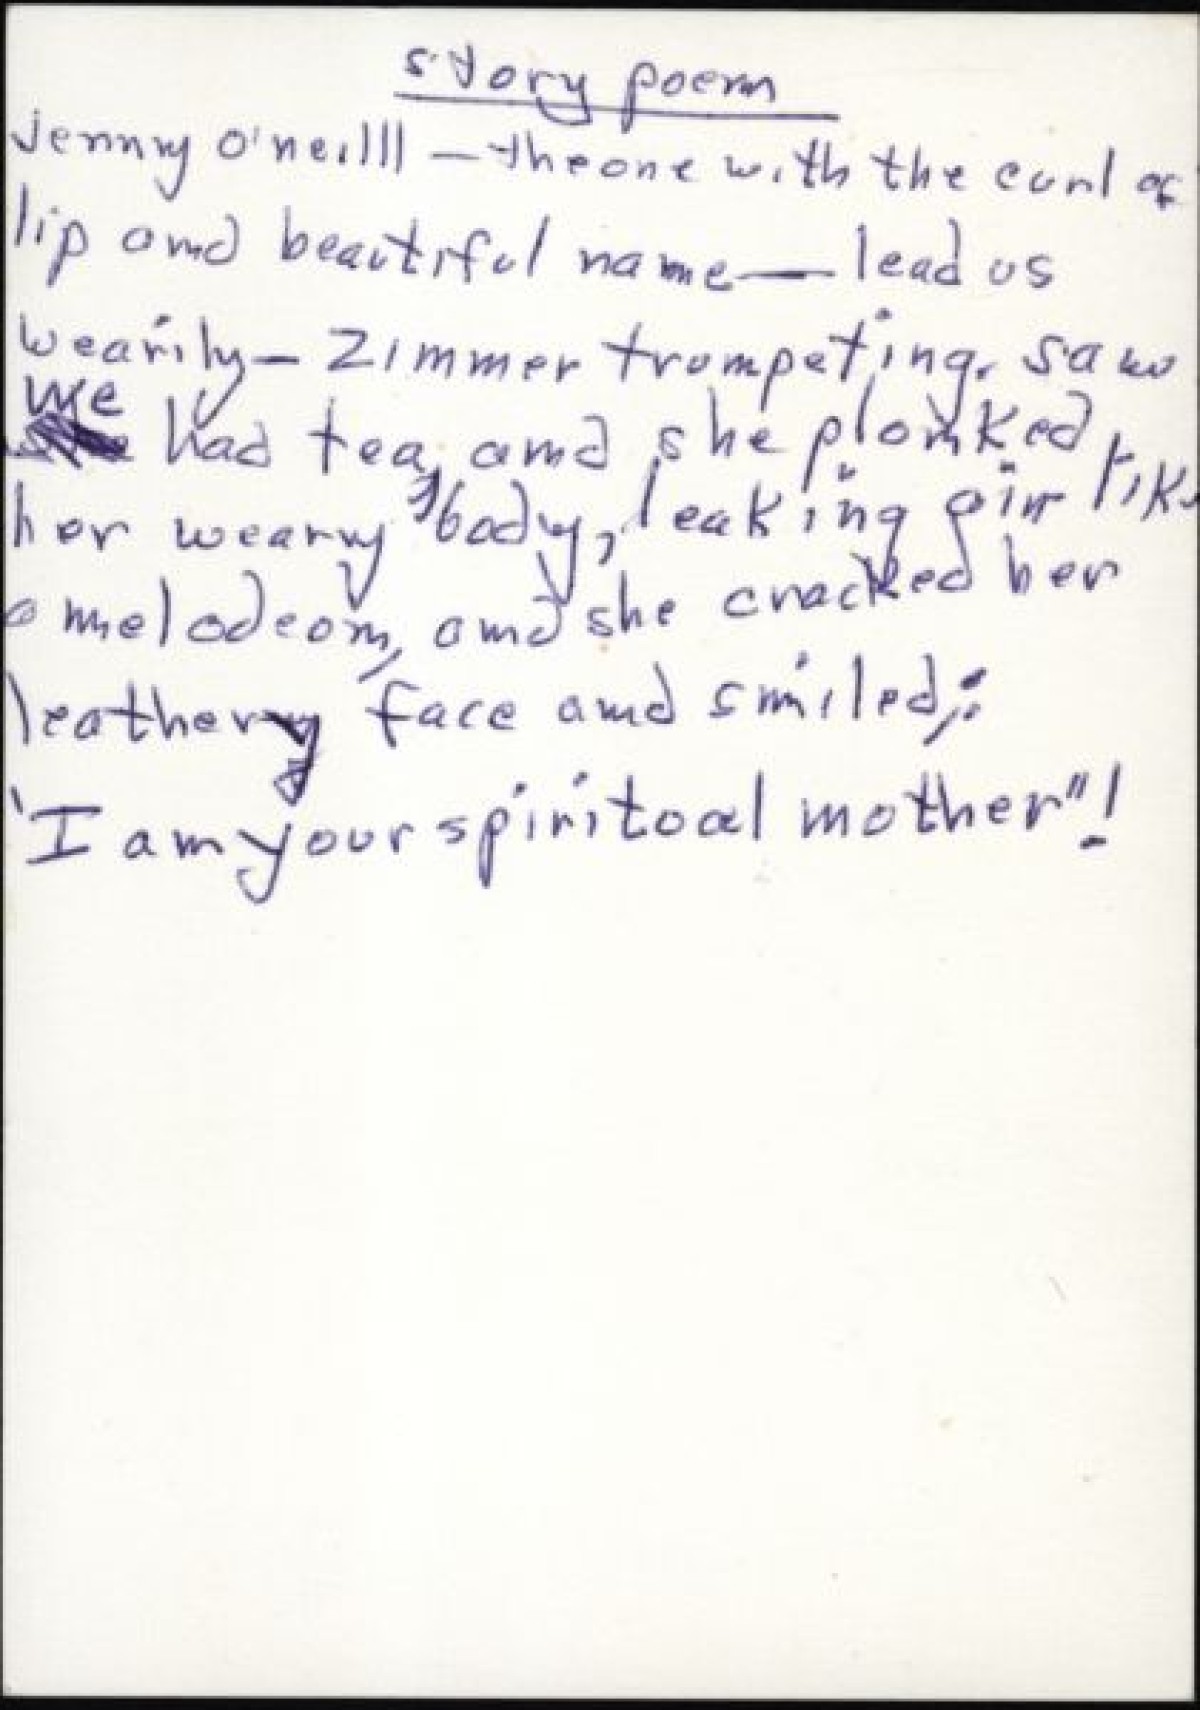 story poem
Jenny O'neilll — the one with the curl of
lip and beautiful name — lead us
wearily — Zimmer trumpeting. Saw
we
had tea, and she plonked
her weary body, leaking gin like
a melodeon, and she cracked her
leathery face and smiled;:
"I am your spiritual mother"!